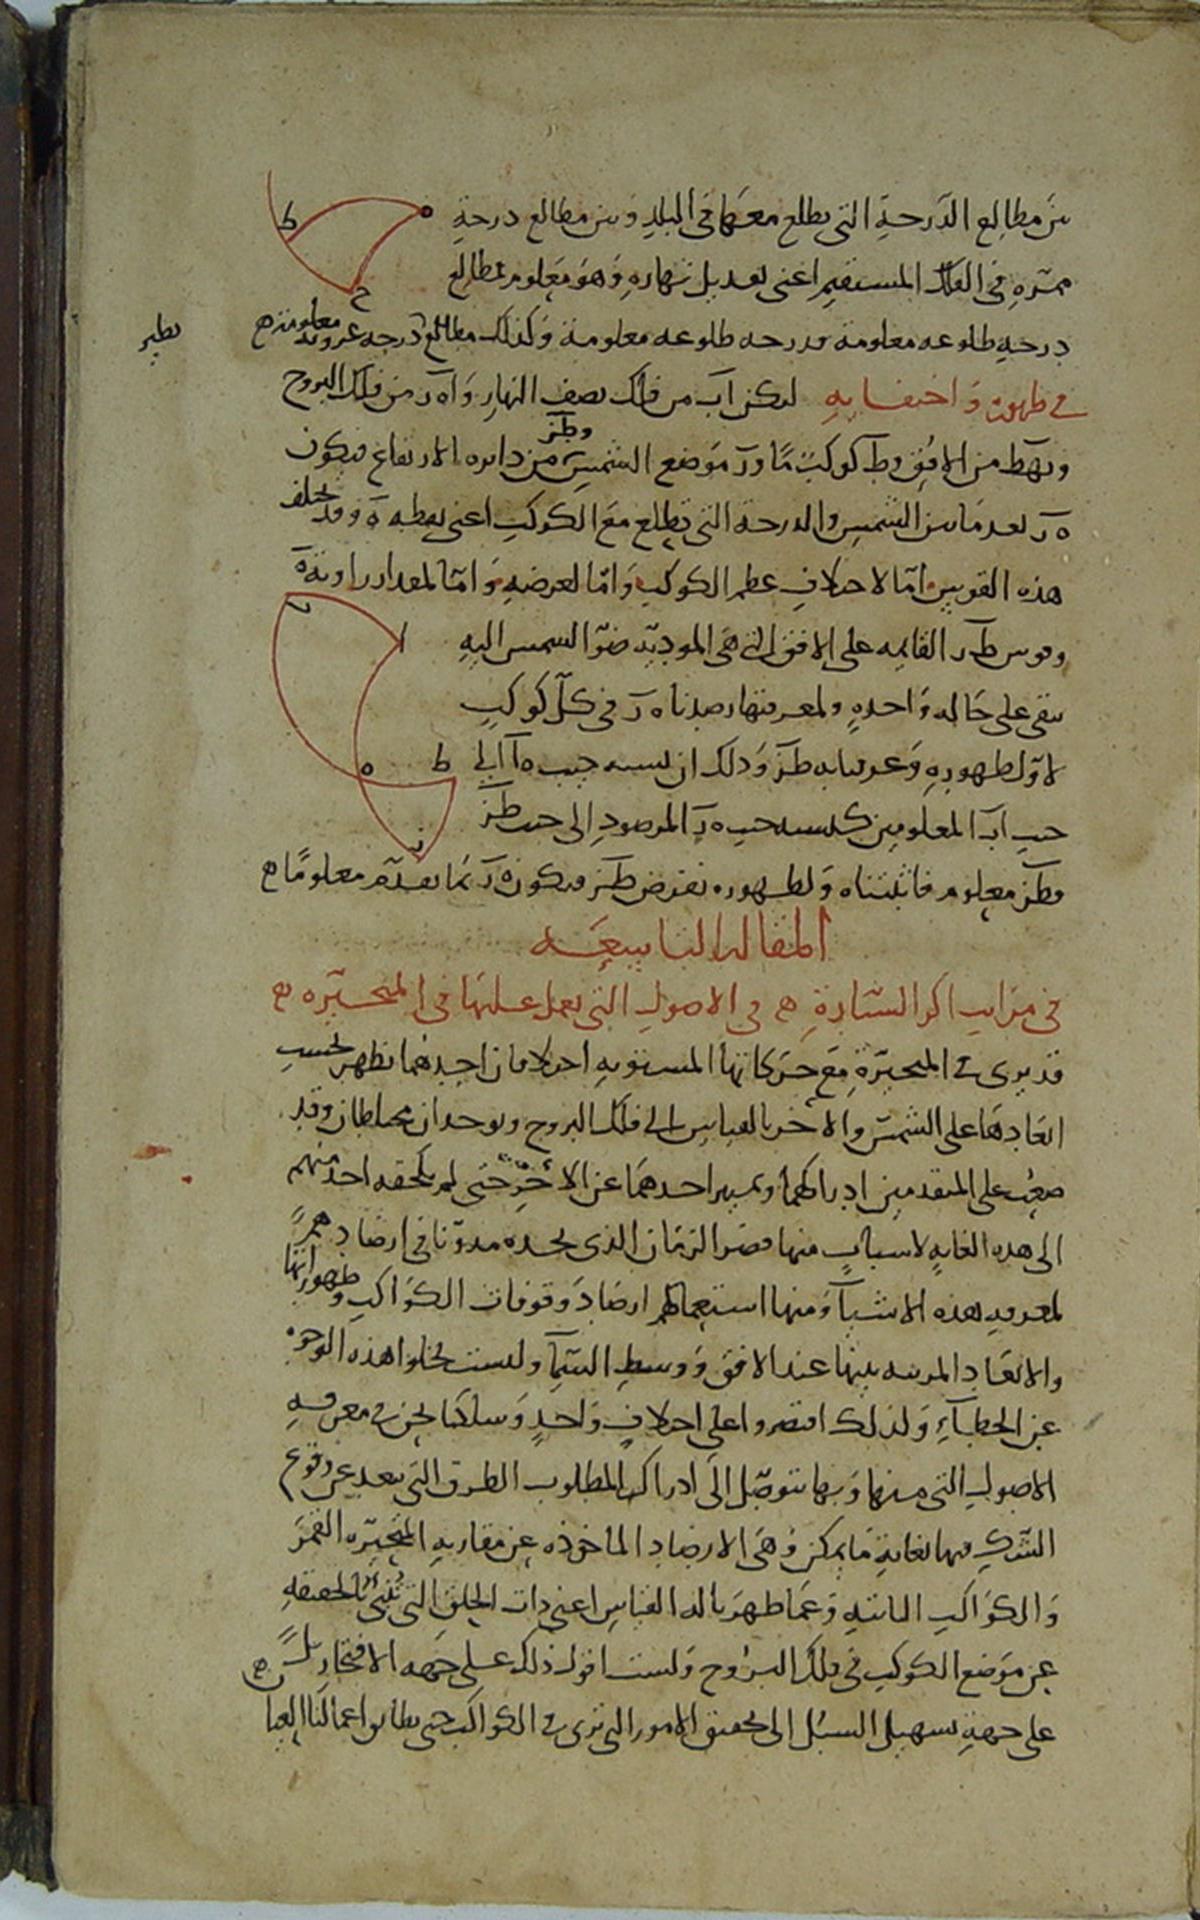 بين مطالع الدرجة التي يطلع معها في البلد وبين مطالع درجة
ممره في الفلك المستقيم اعني تعديل نهاره وهو معلوم فمطالع
درجة طلوعه معلومة فدرجة طلوعه معلومة وكذلك مطالع درجة غروبه معلومة
في ظهوره واختفايه ليكن اب من فلك نصف النهار و اه ر من فلك البروج
و ه ط من الافق و ط كوكب ما و ر موضع الشمس و ط ز من دايره الارتفاع فيكون
ه ر بعد ما بين الشمس والدرجة التي تطلع مع الكوكب اعني نقطه ه وقد تختلف
هذه القوس اما لاختلاف عظم الكوكب واما لعرضه واما لمقدار زاوية ه
وقوس ط ز القايمه على الافق التي هي المودية ضو الشمس اليه
تبقى على حاله واحده ولمعرفتها رصدنا ه ر في كل كوكب
لاول ظهوره وعرفنا به ط ز وذلك ان نسبه جيب ه ا الى
جيب اب المعلومين كنسبه جيب ه ر المرصود الى جيب ط ز
فط ز معلوم فاثبتناه ولظهوره نفرض ط ز فيكون ه ر بما تقدم معلوما
المقاله التاسعه
في مراتب اكر السيارة في الاصول التي يعمل عليها في المتحيره
قد يرى في المتحيرة مع حركاتها المستويه اختلافان احدهما يظهر بحسب
ابعادها على الشمس والاخر بالقياس الى فلك البروج ويوجدان مختلطان وقد
صعب على المتقدمين ادراكهما وتمييز احدهما عن الاخر حتى لم يلحقه احد منهم
الى هذه الغايه لاسباب منها قصر الزمان الذي نجده مدونا في ارصادهم
لمعرفه هذه الاشيا ومنها استعمالهم ارصاد وقوفات الكواكب وظهوراتها
والابعاد المرييه بينها عند الافق ووسط السما وليست تخلوا هذه الوجوه
عن الخطاء ولذلك اقتصروا على اختلاف واحد وسلكنا نحن في معرفه
الاصول التي منها وبها نتوصل الى ادراك المطلوب الطرق التي تبعد عن وقوع
الشك فيها بغاية ما يمكن وهي الارصاد الماخوذه عن مقاربه المتحيره القمر
والكواكب الثابته وعما ظهر بآله القياس اعني ذات الحلق التي تنبي بالحقيقه
عن موضع الكوكب في فلك البروج ولست اقول ذلك على جهه الافتخار بل
على جهة تسهيل السبل الى تحقيق الامور التي ترى في الكواكب حتى يطابق اعمالنا